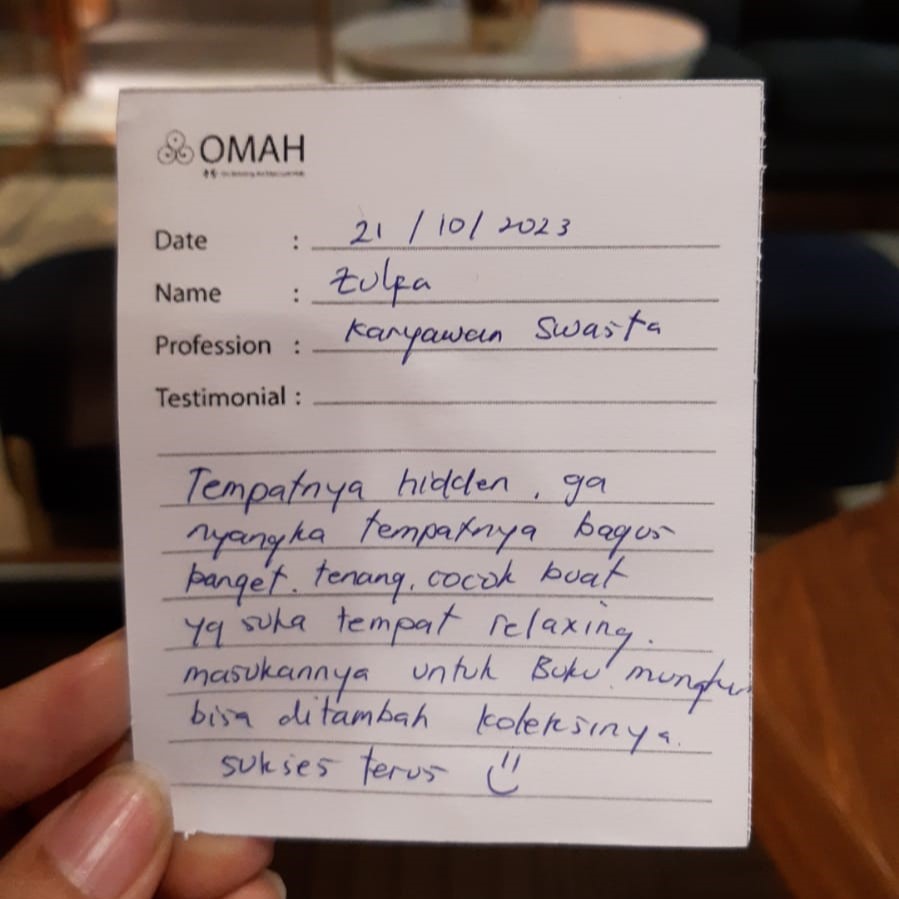 OMAH
Date : 21 / 10 / 2023
Name : Zulfa
Profession : Karyawan Swasta
Testimonial :
Tempatnya hidden, ga
nyangka tempatnya bagus
banget. tenang, cocok buat
yg suka tempat relaxing.
masukannya untuk Buku mungkin
bisa ditambah koleksinya.
sukses terus